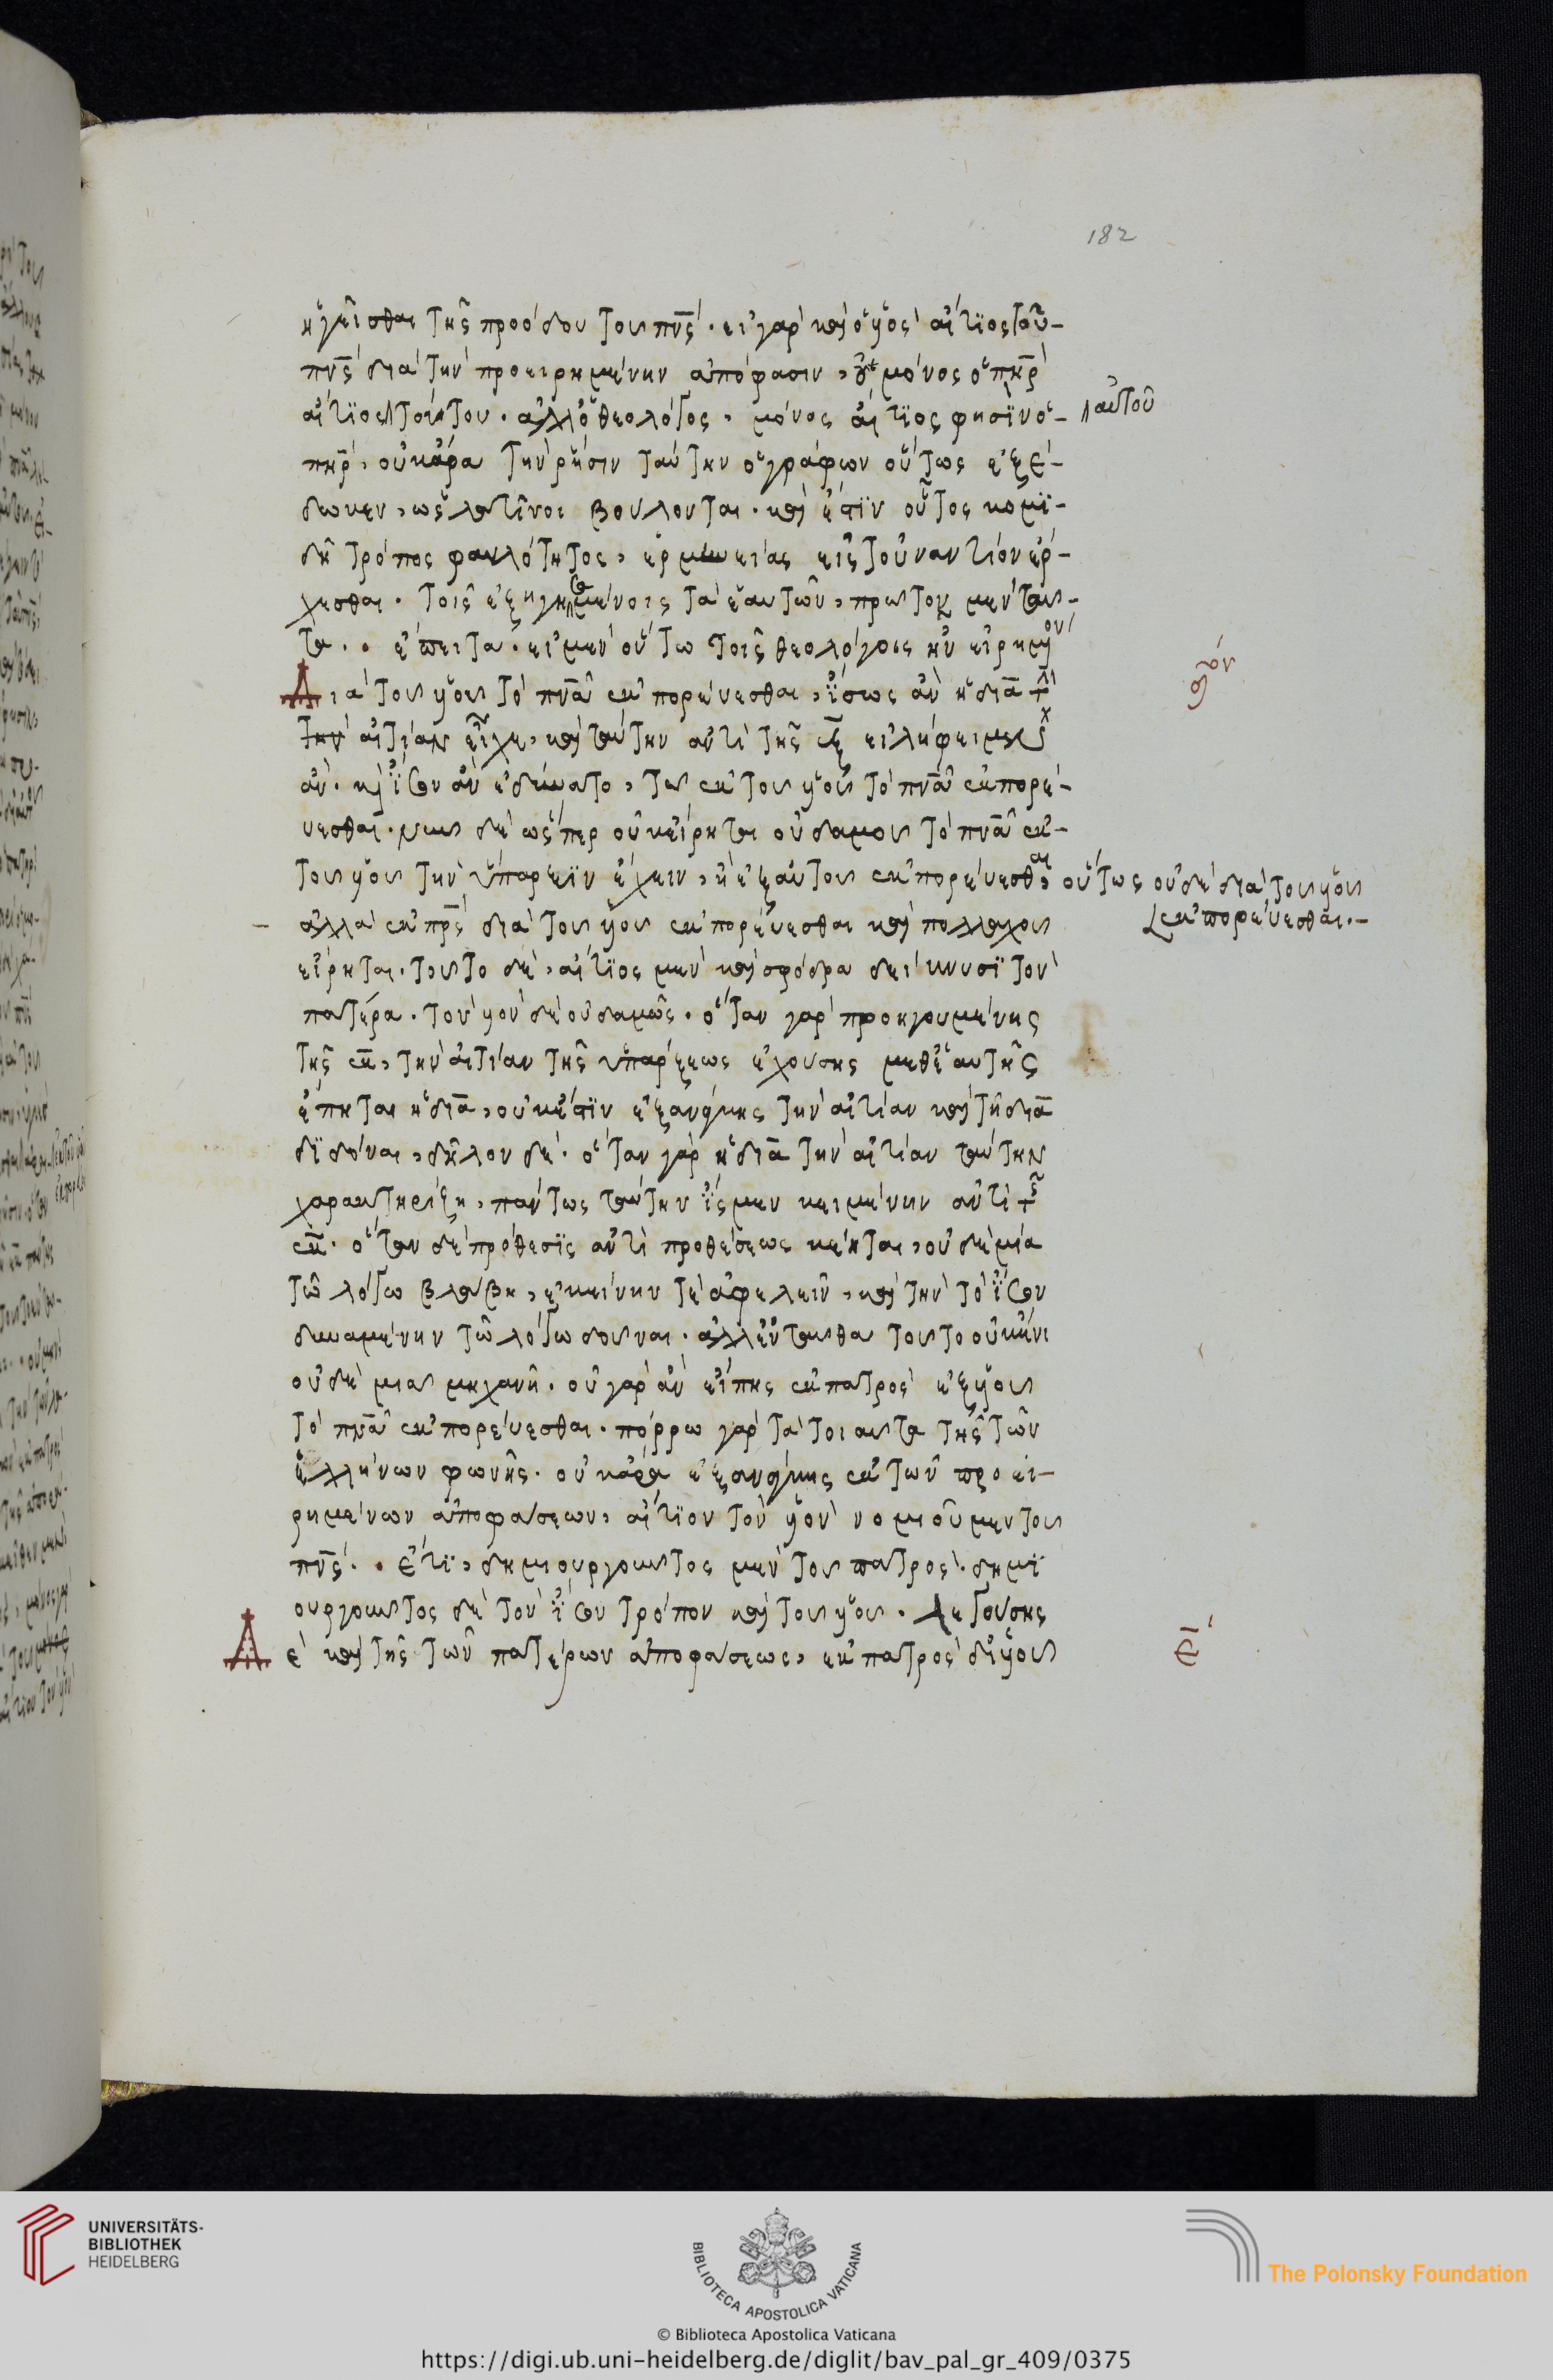 182
ἡγεῖσθαι τῆς προόδου τοῦ πνς. εἰ γὰρ καὶ ὁ υἱὸς αἴτιος τοῦ
πνς διὰ τὴν προειρημένην ἀπόφασιν, οὐ μόνος ὁ πηρ
αἴτιος τούτου. ἀλλ' ὁ θεολόγος, μόνος αἴτιος φησὶν ὁ
αὐτοῦ
πηρ, οὐκ ἄρα τὴν ῥῆσιν ταύτην ὁ γράφων οὕτως ἐξέ-
δωκεν, ὡς λατῖνοι βούλονται. καὶ ἐστὶν οὗτος κομι-
δῆ τρόπος φαυλότητος, ἑρμηνείας εἰς τοὐναντίον ἔρ-
χεσθαι. τοῖς ἐξηγημένοις τὰ ἑαυτῶν, πρῶτον μὲν ταῦ-
τα. ἔπειτα. εἰ μὲν οὕτω τοῖς θεολόγοις ἦν εἰρημένον
Διὰ τοῦ υἱοῦ τὸ πνα ἐκπορεύεσθαι, ἴσως ἂν ἡ διὰ
τὴν αἰτίαν εἶχε, καὶ ταύτην ἀντὶ τῆς ἐξ εἰλήφειμεν
ἄν. καὶ ἴσον ἂν ἐδύνατο, τῷ ἐκ τοῦ υἱοῦ τὸ πνα ἐκπορεύ-
εσθαι. νῦν δὲ ὥσπερ οὐκ εἴρηται οὐδαμοῦ τὸ πνα ἐκ
τοῦ υἱοῦ τὴν ὕπαρξιν ἔχειν, ἢ ἐξ αὐτοῦ ἐκπορεύεσθαι, οὕτως οὐδὲ διὰ τοῦ υἱοῦ
ἐκπορεύεσθαι.
ἀλλὰ ἐκ πρς διὰ τοῦ υἱοῦ ἐκπορεύεσθαι καὶ πολλαχοῦ
εἴρηται. τοῦτο δὲ, αἴτιος μὲν καὶ σφόδρα δείκνυσι τὸν
πατέρα. τὸν υἱὸν δὲ οὐδαμῶς. ὅταν γὰρ προηγουμένης
τῆς ἐκ, τὴν αἰτίαν τῆς ὑπάρξεως ἐχούσης μεθ' ἑαυτῆς
ἕπηται ἡ διὰ, οὐκ ἔστιν ἐξ ἀνάγκης τὴν αἰτίαν καὶ τῇ διὰ
διδόναι, δῆλον δέ. ὅταν γὰρ ἡ διὰ τὴν αἰτίαν ταύτην
χαρακτηρίζῃ, πάντως ταύτην ἴσμεν κειμένην ἀντὶ τῆς
ἐκ. ὅταν δὲ πρόθεσις ἀντὶ προθέσεως κέηται, οὐδεμία
τῷ λόγῳ βλάβη, ἐκείνην τὲ ἀφελεῖν, καὶ τὴν τὸ ἴσον
δυναμένην τῷ λόγῳ δοῦναι. ἀλλ' ἐνταῦθα τοῦτο οὐκ ἔνι
οὐδὲ μιᾷ μηχανῇ. οὐ γὰρ ἂν εἴπῃς ἐκ πατρὸς ἐξ υἱοῦ
τὸ πνα ἐκπορεύεσθαι. πόρρω γὰρ τὰ τοιαῦτα τῆς τῶν
ἑλλήνων φωνῆς. οὐκ ἄρα ἐξ ἀνάγκης ἐκ τῶν προει-
ρημένων ἀποφάσεων, αἴτιον τὸν υἱὸν νομιοῦμεν τοῦ
πνς. ἔτι, δημιουργοῦντος μὲν τοῦ πατρὸς. δημι
ουργοῦντος δὲ τὸν ἴσον τρόπον καὶ τοῦ υἱοῦ. λεγούσης
Δὲ καὶ τῆς τῶν πατέρων ἀποφάσεως, ἐκ πατρὸς δι' υἱοῦ
ε
UNIVERSITÄTS-
BIBLIOTHEK
HEIDELBERG
BIBLIOTECA APOSTOLICA VATICANA
The Polonsky Foundation
© Biblioteca Apostolica Vaticana
https://digi.ub.uni-heidelberg.de/diglit/bav_pal_gr_409/0375